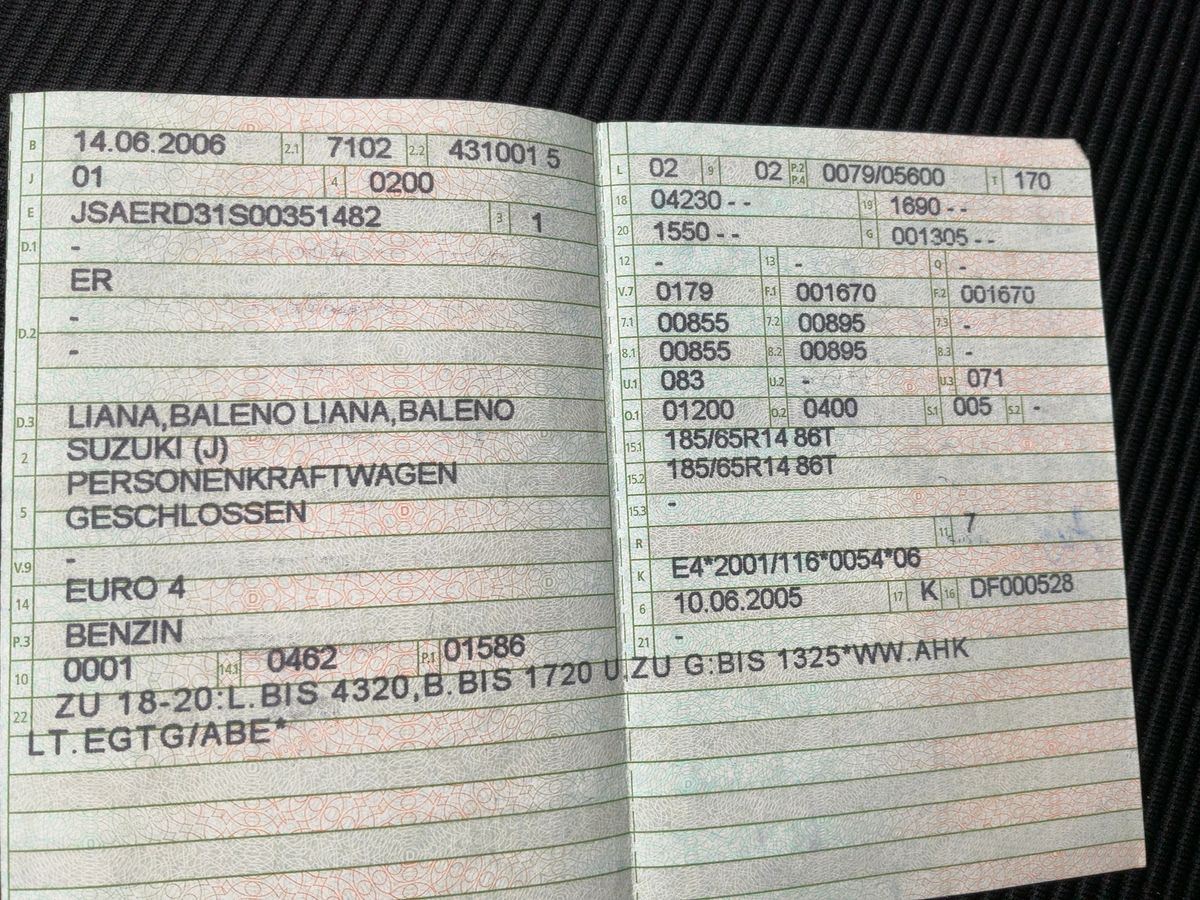 B 14.06.2006 2.1 7102 2.2 431001 5
J 01 4 0200
E JSAERD31S00351482 3 1
D.1 -
ER
-
D.2
-
D.3 LIANA,BALENO LIANA,BALENO
2 SUZUKI (J)
PERSONENKRAFTWAGEN
5 GESCHLOSSEN
V.9 -
14 EURO 4
P.3 BENZIN
10 0001 14.1 0462 P.1 01586
22 ZU 18-20:L.BIS 4320,B.BIS 1720 U.ZU G:BIS 1325*WW.AHK
LT.EGTG/ABE*
L 02 9 02 P.2 P.4 0079/05600 T 170
18 04230-- 19 1690--
20 1550-- G 001305--
12 - 13 - Q -
V.7 0179 F.1 001670 F.2 001670
7.1 00855 7.2 00895 7.3 -
8.1 00855 8.2 00895 8.3 -
U.1 083 U.2 - U.3 071
O.1 01200 O.2 0400 S.1 005 S.2 -
15.1 185/65R14 86T
15.2 185/65R14 86T
15.3 -
R 11 7
K E4*2001/116*0054*06
6 10.06.2005 17 K 16 DF000528
21 -